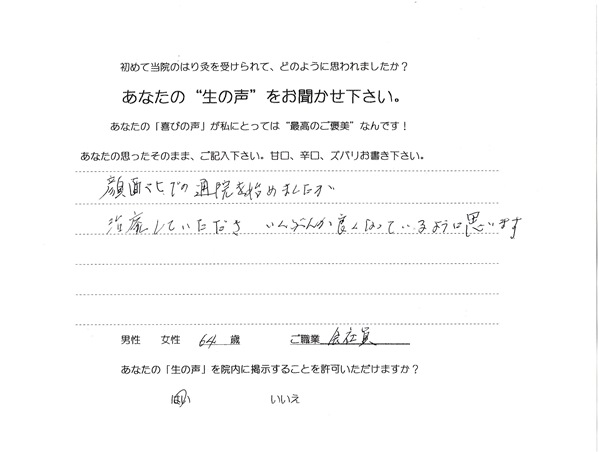 初めて当院のはり灸を受けられて、どのように思われましたか？
あなたの“生の声”をお聞かせ下さい。
あなたの「喜びの声」が私にとっては“最高のご褒美”なんです！
あなたの思ったそのまま、ご記入下さい。甘口、辛口、ズバリお書き下さい。
顔面マヒでの通院を始めましたが
治療していただき いくぶんか良くなっているように思います
男性 女性 64 歳 ご職業 会社員
あなたの「生の声」を院内に掲示することを許可いただけますか？
はい いいえ